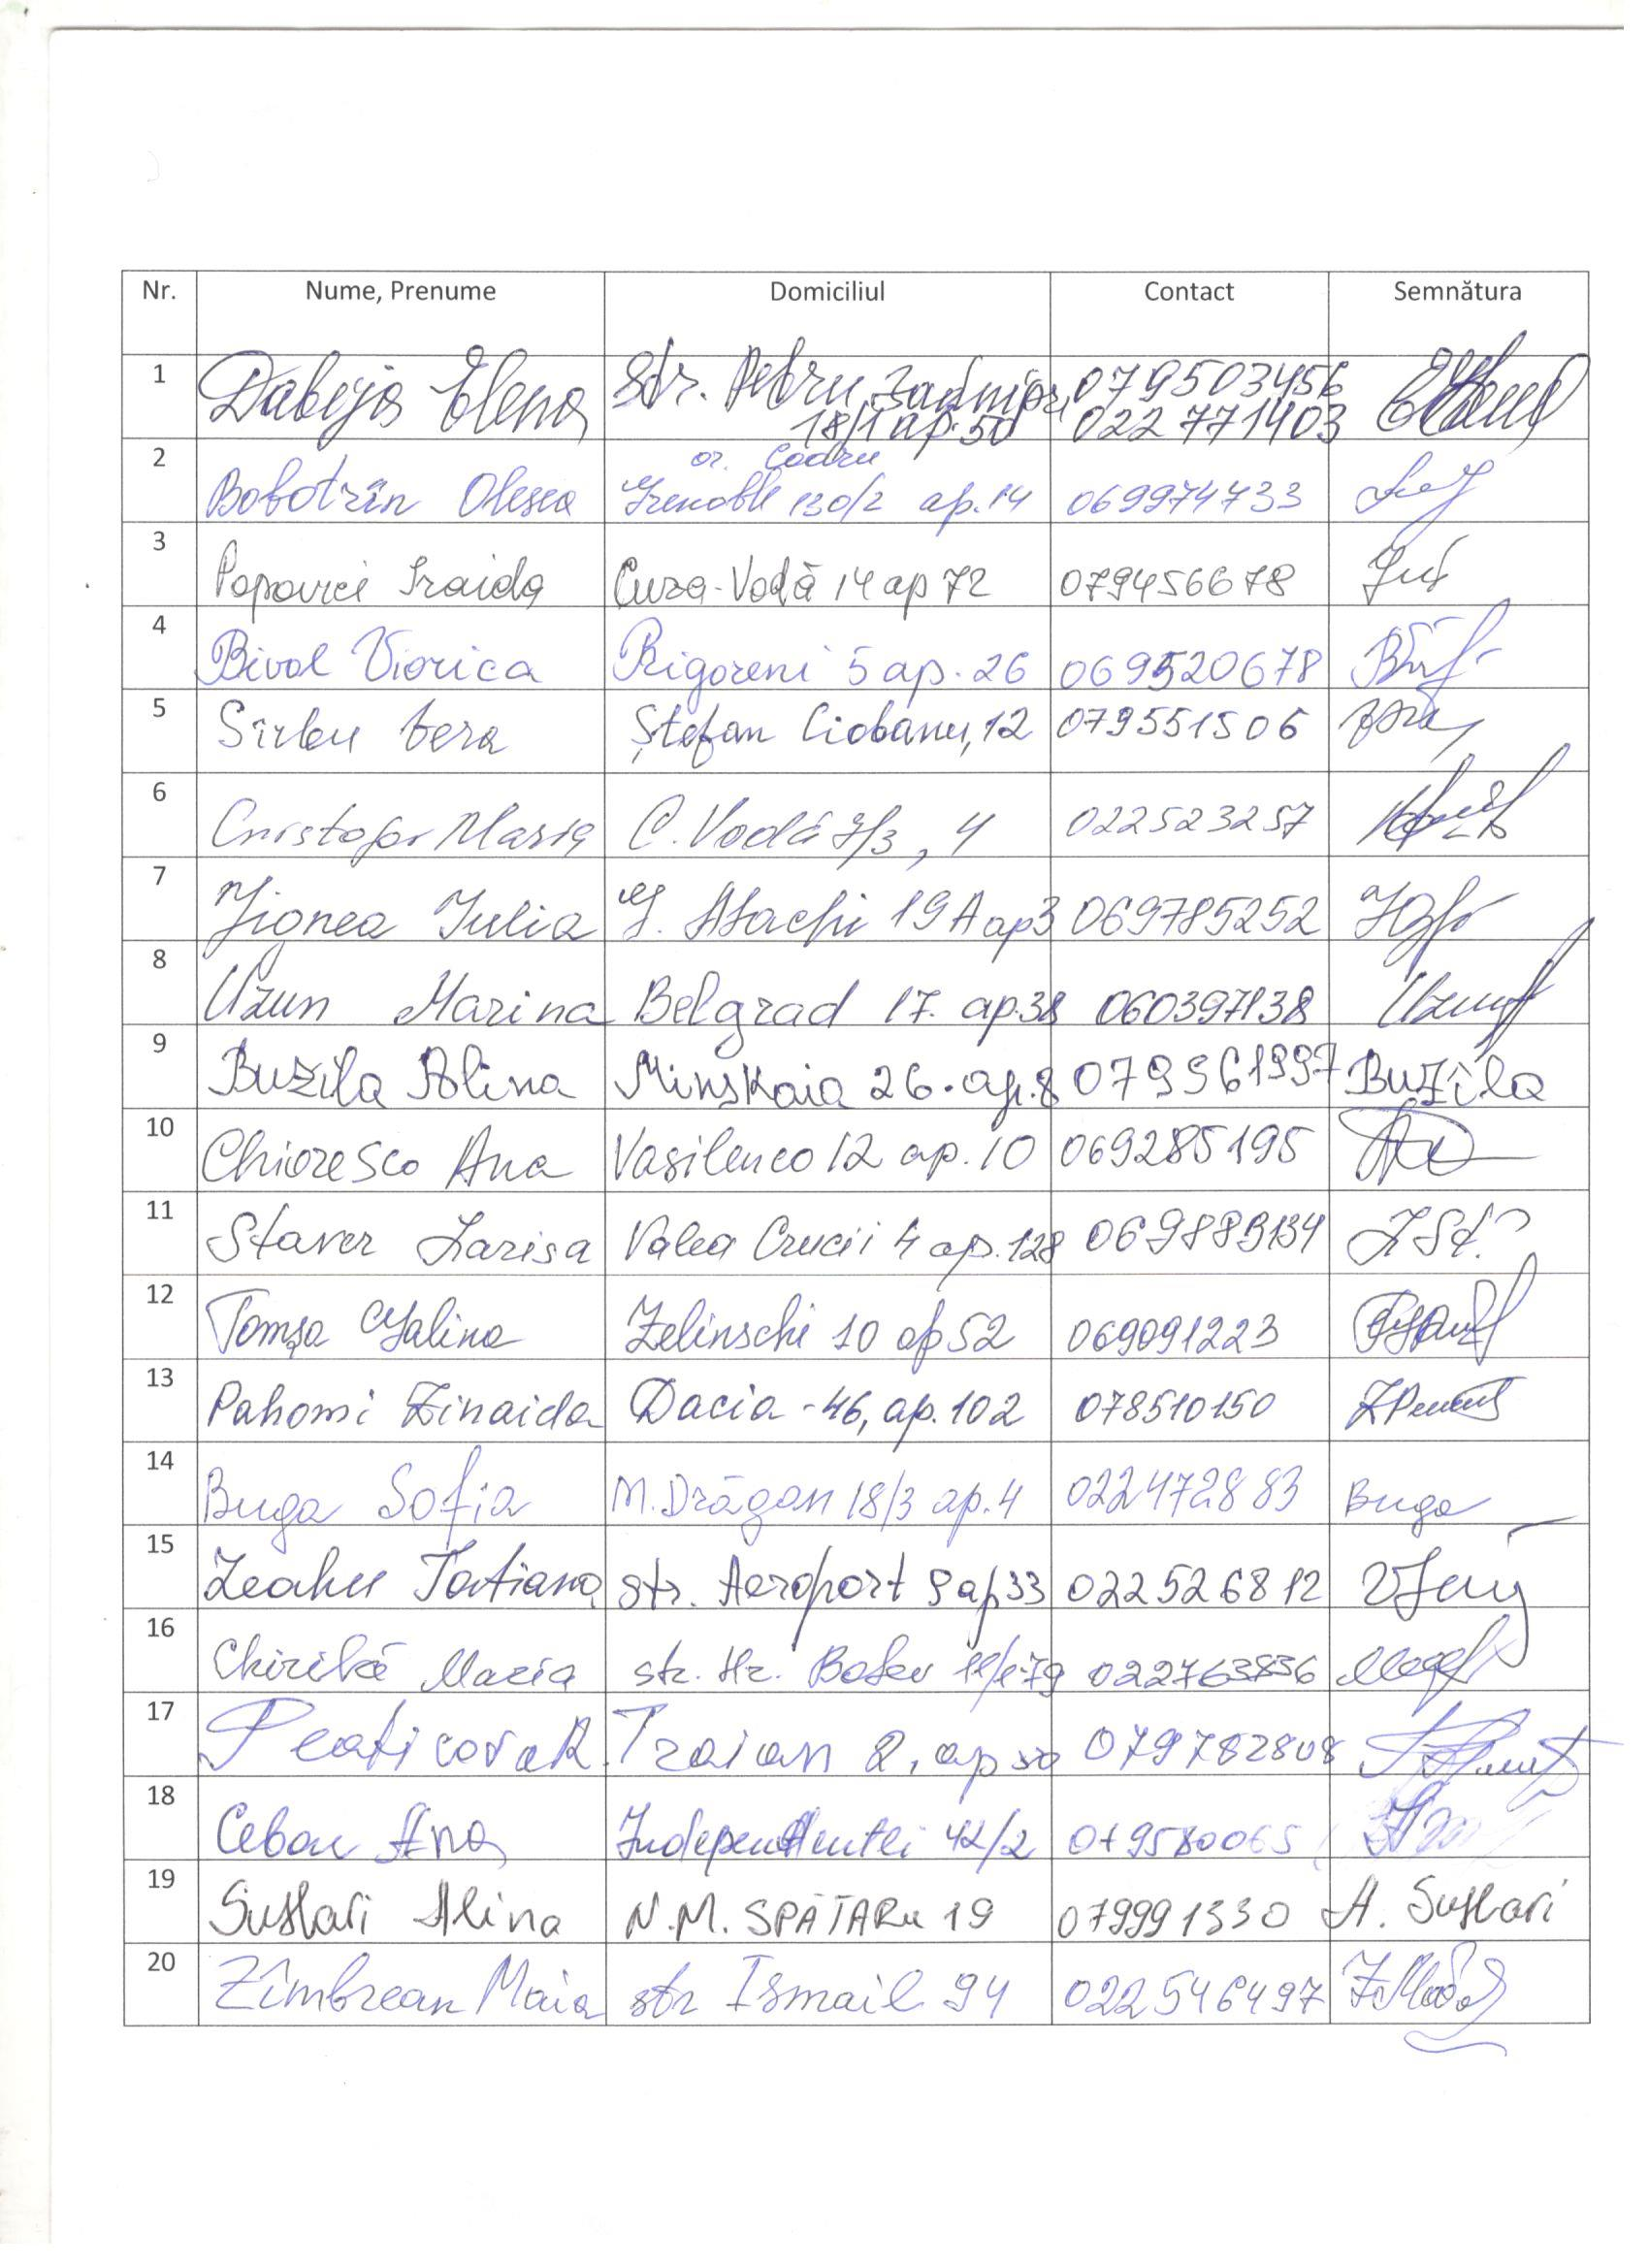 Nr. Nume, Prenume Domiciliul Contact Semnătura
1 Dabija Elena Str. Petru Zadnipru 079503456
18/1 ap. 50 022 771403
2 or. Codru
Bobotrîn Olesea Grenoble 130/2 ap. 14 069974733
3 Popovici Iraida Cuza-Vodă 14 ap 72 079456678
4 Bivol Viorica Rigoreni 5 ap. 26 069520678
5 Sîrbu Vera Ștefan Ciobanu, 12 079551506
6 Cristofor Maria C. Vodă 7/3, 4 022523257
7 Jignea Iulia G. Asachi 19 A ap 3 069785252
8 Uzun Marina Belgrad 17. ap. 38 060397138
9 Buzila Alina Minskaia 26. ap. 8 079961997 Buzila
10 Chioresco Ana Vasilenco 12 ap. 10 069285195
11 Staver Larisa Valea Crucii 4 ap. 128 069889134
12 Tomșa Galina Zelinschi 10 ap 52 069091223
13 Pahomi Zinaida Dacia - 46, ap. 102 078510150
14 Buga Sofia M. Drăgan 18/3 ap. 4 022472883 Buga
15 Leahu Tatiana str. Aeroport 9 ap 33 022526812
16 Chirilă Maria str. Hr. Botev 022763836
17 Traian 2, ap 079782808
18 Ceban Ana Independentei 42/2 079580065
19 Suslari Alina N.M. SPĂTARu 19 079991330 A. Suslari
20 Zîmbrean Maia str Ismail 94 022546497